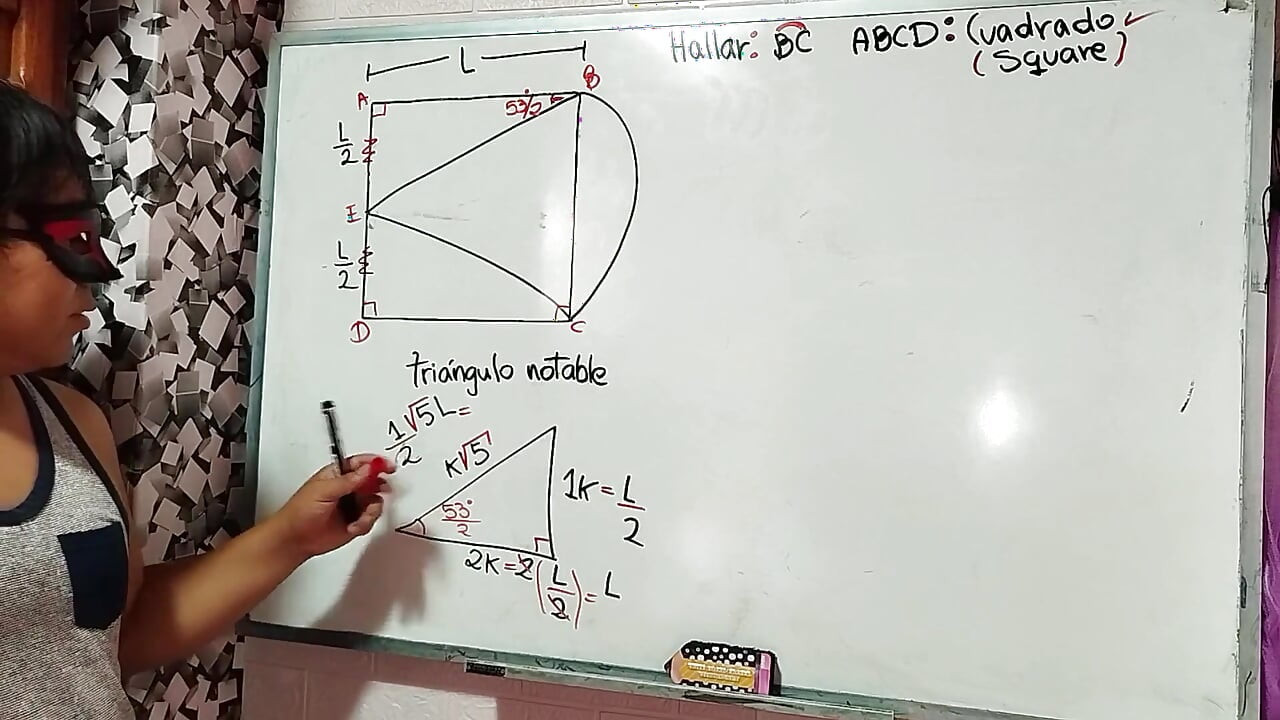 Hallar: BC ABCD: Cuadrado
(Square)
L
A
B
53°/2
L/2
E
L/2
D
C
triángulo notable
1/2 √5 L =
K√5
53°/2
1K = L/2
2K = 2(L/2) = L